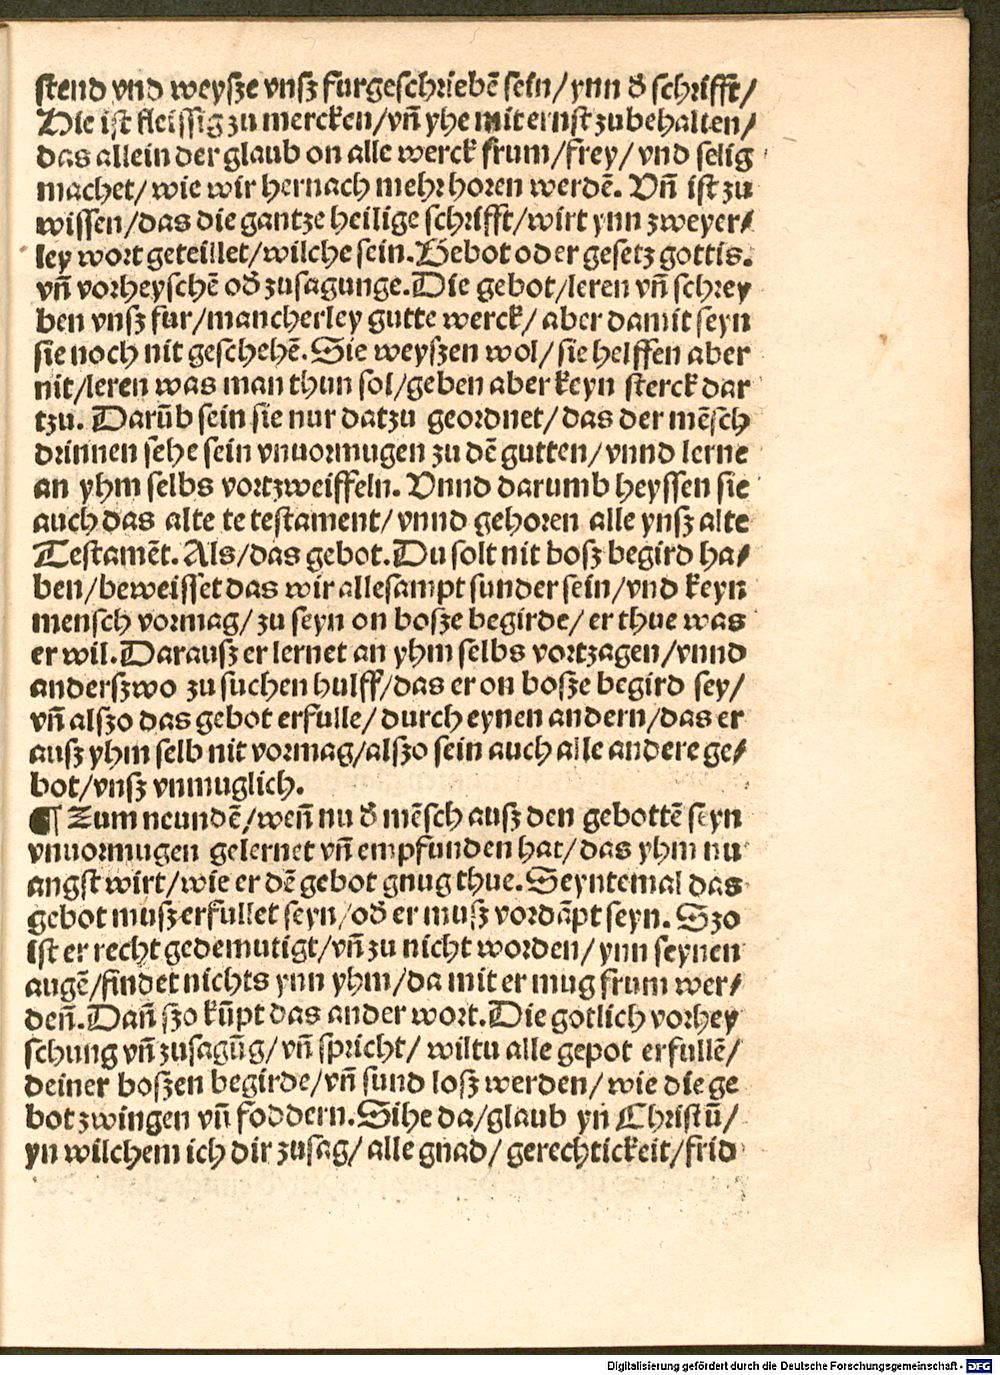 stend vnd weysze vnsz furgeschriebē sein/ ynn ď schrifft/
Hie ist fleissig zu mercken/ vn̄ yhe mit ernst zubehalten/
das allein der glaub on alle werck frum/ frey/ vnd selig
machet/ wie wir hernach mehr horen werdē. Vn̄ ist zu
wissen/ das die gantze heilige schrifft/ wirt ynn zweyer⸗
ley wort geteillet/ wilche sein. Gebot oder gesetz gottis.
vn̄ vorheyschē oď zusagunge. Die gebot/ leren vn̄ schrey
ben vnsz fur/ mancherley gutte werck/ aber damit seyn
sie noch nit geschehē. Sie weyszen wol/ sie helffen aber
nit/ leren was man thun sol/ geben aber keyn sterck dar
tzu. Darūb sein sie nur datzu geordnet/ das der mēsch
drinnen sehe sein vnuormugen zu dē gutten/ vnnd lerne
an yhm selbs vortzweiffeln. Vnnd darumb heyssen sie
auch das alte te testament/ vnnd gehoren alle ynsz alte
Testamēt. Als/ das gebot. Du solt nit bosz begird ha⸗
ben/ beweisset das wir allesampt sunder sein/ vnd keyn
mensch vormag/ zu seyn on bosze begirde/ er thue was
er wil. Darausz er lernet an yhm selbs vortzagen/ vnnd
anderszwo zu suchen hulff/ das er on bosze begird sey/
vn̄ alszo das gebot erfulle/ durch eynen andern/ das er
ausz yhm selb nit vormag/ alszo sein auch alle andere ge⸗
bot/ vnsz vnmuglich.
¶ Zum neundē/ wen̄ nu ď mēsch ausz den gebottē seyn
vnuormugen gelernet vn̄ empfunden hat/ das yhm nu
angst wirt/ wie er dē gebot gnug thue. Seyntemal das
gebot musz erfullet seyn/ oď er musz vordāpt seyn. Szo
ist er recht gedemutigt/ vn̄ zu nicht worden/ ynn seynen
augē/ findet nichts ynn yhm/ da mit er mug frum wer⸗
den̄. Dan̄ szo kūpt das ander wort. Die gotlich vorhey
schung vn̄ zusagūg/ vn̄ spricht/ wiltu alle gepot erfullē/
deiner boszen begirde/ vn̄ sund losz werden/ wie die ge
bot zwingen vn̄ foddern. Sihe da/ glaub yn̄ Christū/
yn wilchem ich dir zusag/ alle gnad/ gerechtickeit/ frid
Digitalisierung gefördert durch die Deutsche Forschungsgemeinschaft - DFG